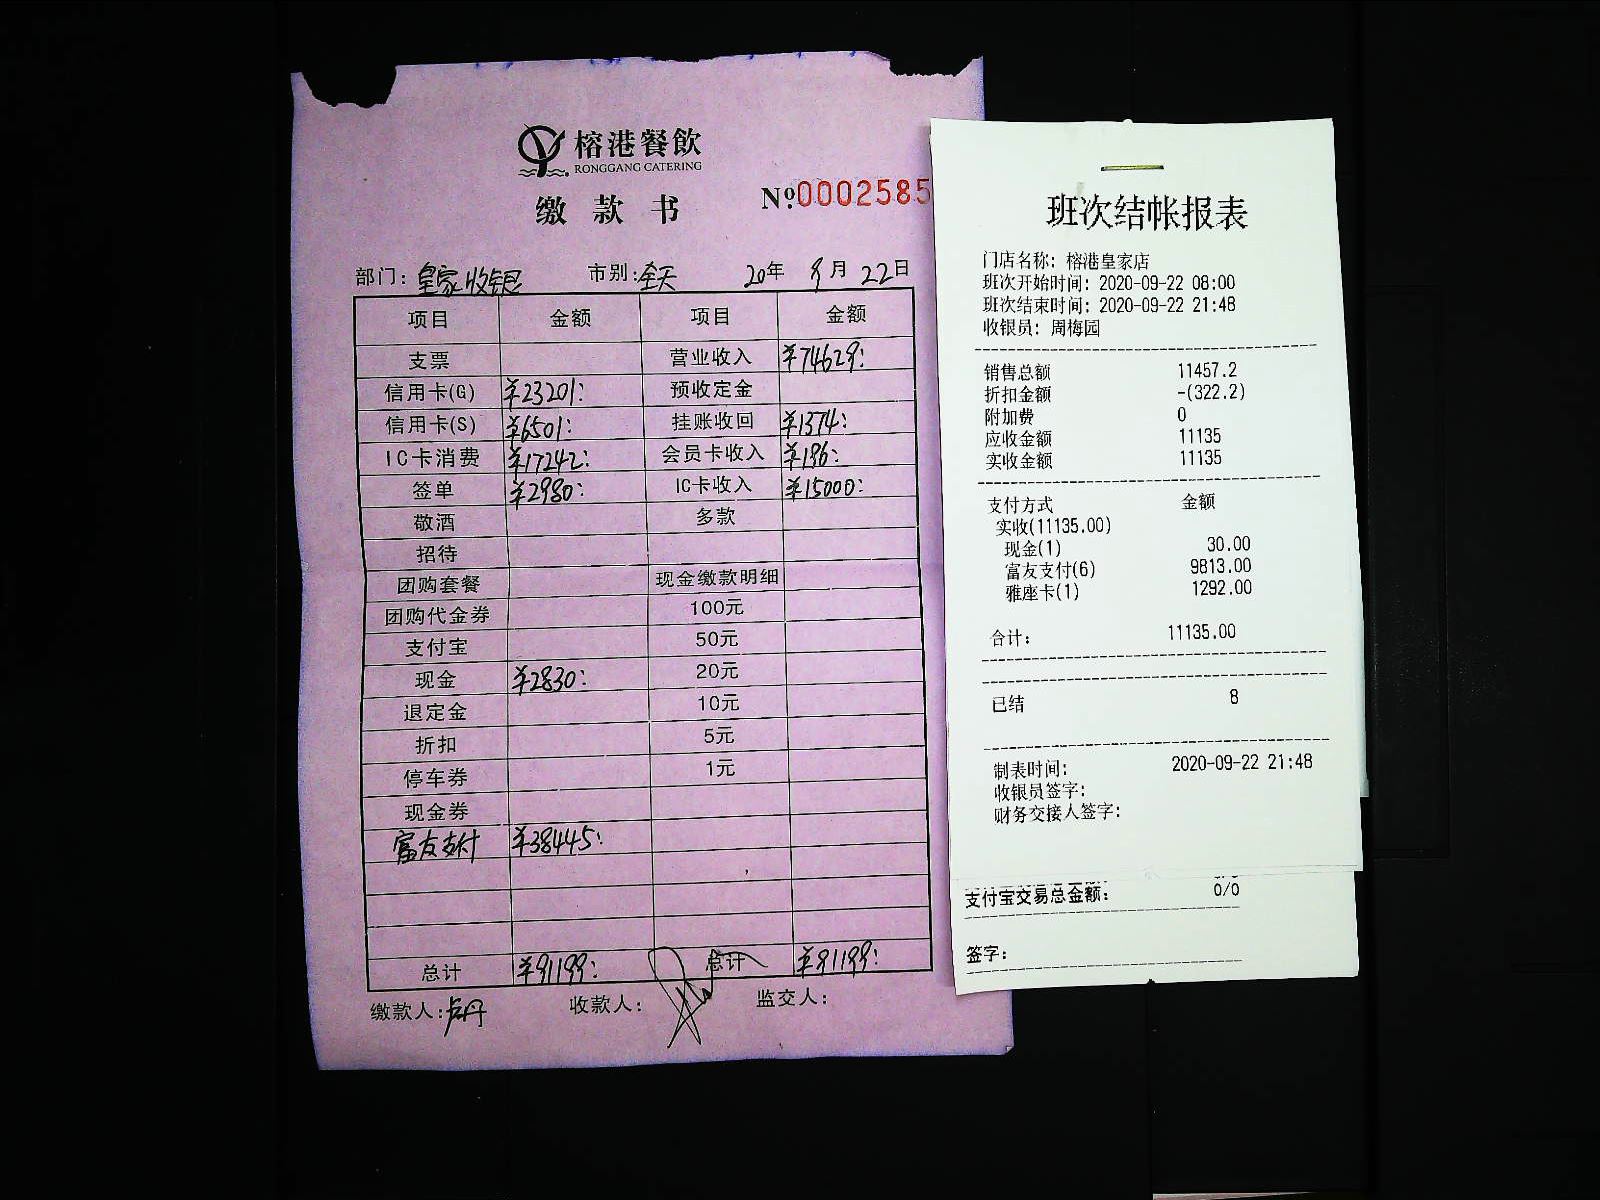 榕港餐飲
RONGGANG CATERING
缴款书
№0002585
部门：皇家收银 市别：全天 20年 9月 22日
项目 金额 项目 金额
支票 营业收入 ¥74629:
信用卡(G) ¥23201: 预收定金
信用卡(S) ¥6501: 挂账收回 ¥1374:
IC卡消费 ¥17242: 会员卡收入 ¥196:
签单 ¥2980: IC卡收入 ¥15000:
敬酒 多款
招待
团购套餐 现金缴款明细
团购代金券 100元
支付宝 50元
现金 ¥2830: 20元
退定金 10元
折扣 5元
停车券 1元
现金券
富友支付 ¥38445:
总计 ¥91199: 总计 ¥91199:
缴款人：卢丹 收款人： 监交人：
班次结帐报表
门店名称：榕港皇家店
班次开始时间：2020-09-22 08:00
班次结束时间：2020-09-22 21:48
收银员：周梅园
销售总额 11457.2
折扣金额 -(322.2)
附加费 0
应收金额 11135
实收金额 11135
支付方式 金额
实收(11135.00)
现金(1) 30.00
富友支付(6) 9813.00
雅座卡(1) 1292.00
合计： 11135.00
已结 8
制表时间： 2020-09-22 21:48
收银员签字：
财务交接人签字：
支付宝交易总金额： 0/0
签字：